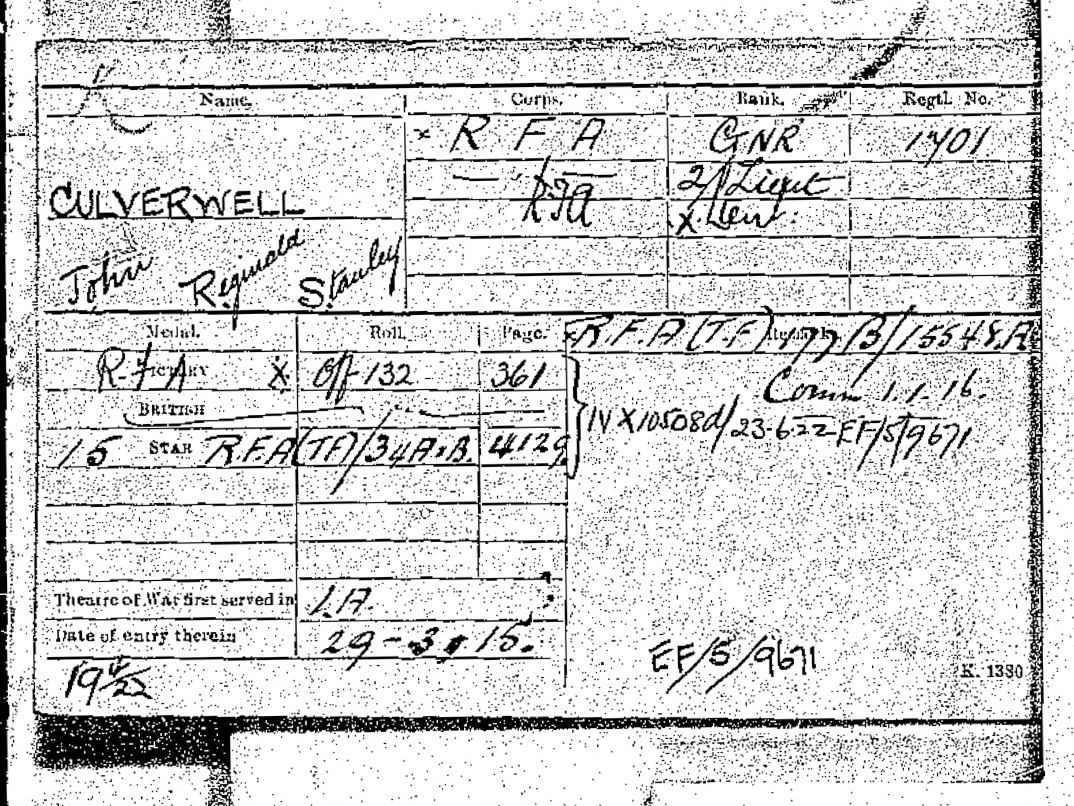 Name. Corps. Rank. Regtl. No.
× R F A GNR 1701
CULVERWELL RFA 2/Lieut
X Lieut.
John Reginald Stanley
Medal. Roll. Page. × R.F.A (T.F) B/15548.A
R.F.A VICTORY X Off 132 361 Comm 1.1.16.
BRITISH IV X 10508d/23-6-22 EF/5/9671
15 STAR R.F.A(TF)/34A+B. 4129
Theatre of War first served in 1.A.
Date of entry therein 29-3-15.
EF/5/9671
K. 1380